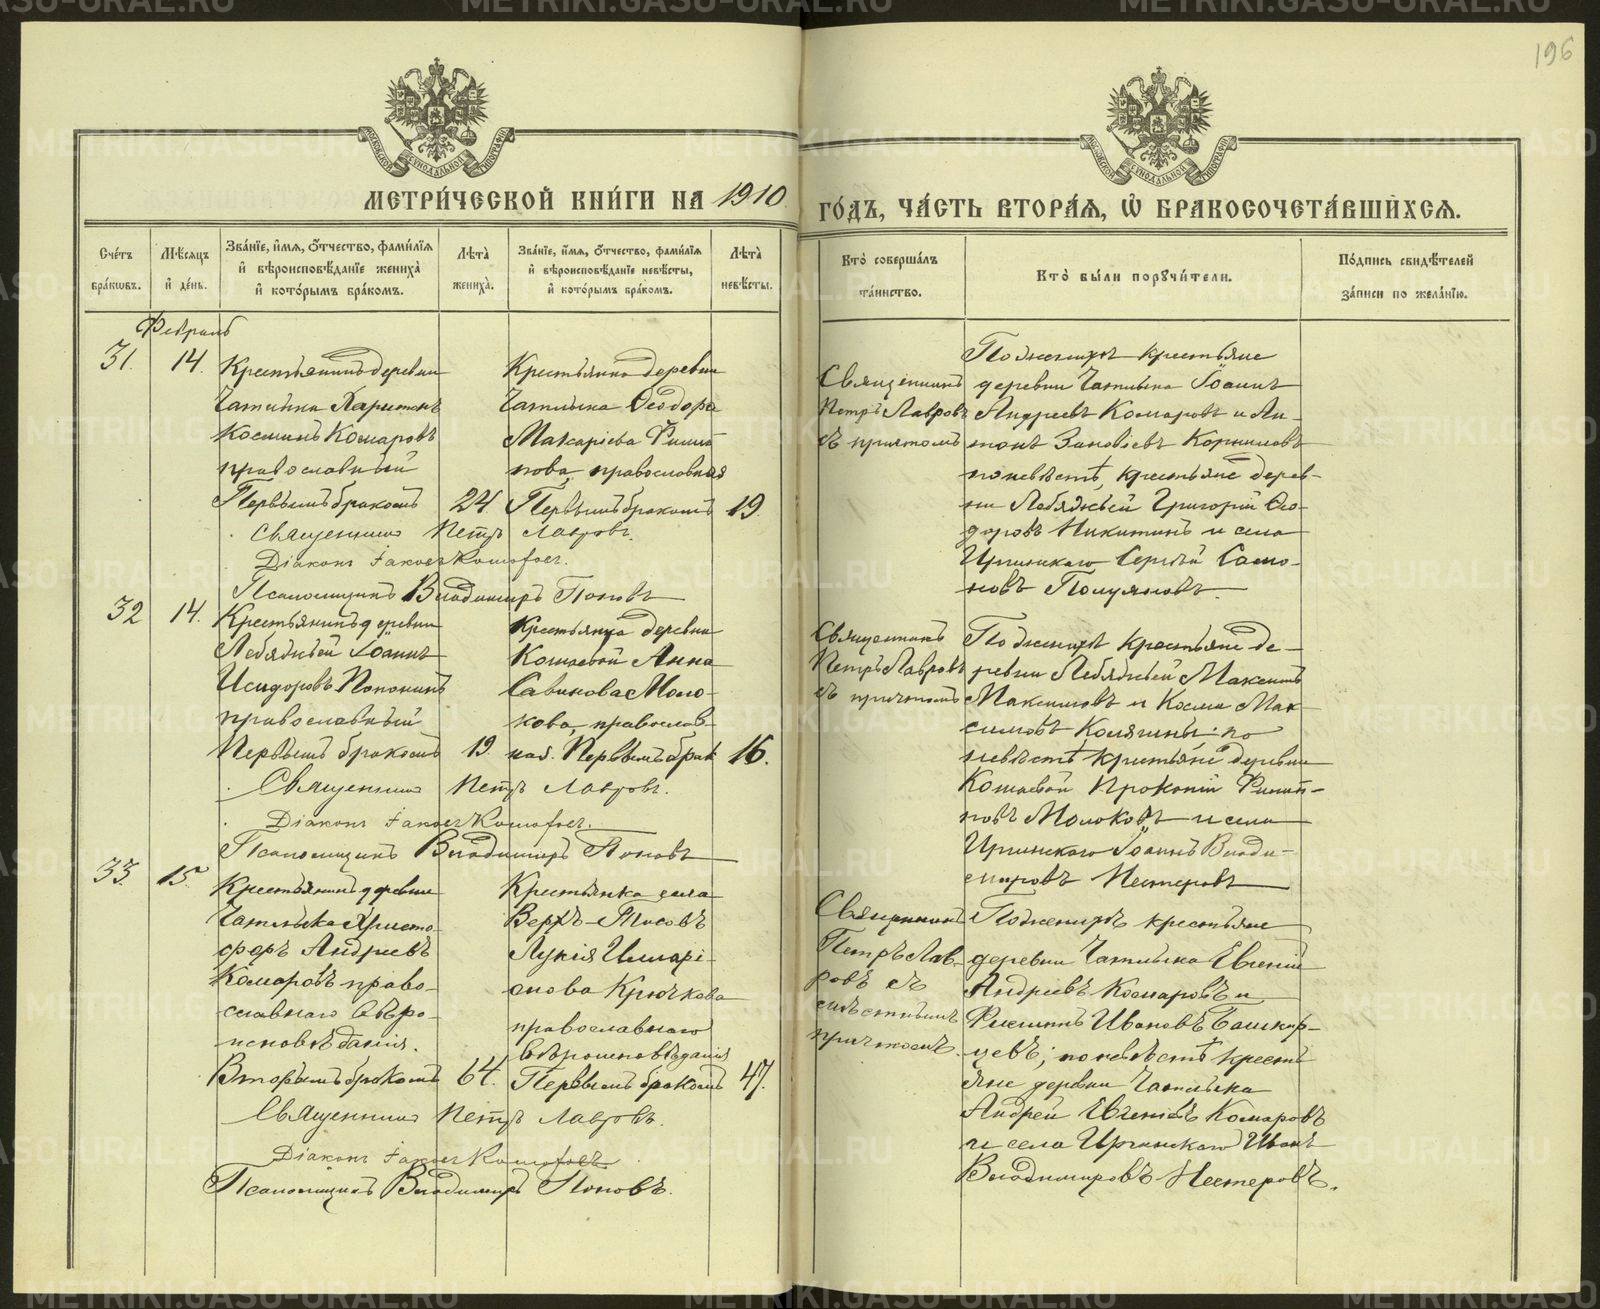 196
МЕТРИ́ЧЕСКОЙ КНИ́ГИ НА 1910
ГО́ДЪ, ЧА́СТЬ ВТОРА́Я, Ѡ БРАКОСОЧЕТА́ВШИХСЯ.
Сче́тъ бра́ковъ.
Мѣ́сяцъ и де́нь.
Зва́нїе, и́мя, о́тчество, фами́лїя и вѣроисповѣ́данїе жениха̀ и кото́рымъ бра́комъ.
Лѣта̀ жениха̀.
Зва́нїе, и́мя, о́тчество, фами́лїя и вѣроисповѣ́данїе невѣ́сты, и кото́рымъ бра́комъ.
Лѣта̀ невѣ́сты.
Кто̀ соверша́лъ та́инство.
Кто̀ бы́ли поручи́тели.
По́дпись свидѣ́телей за́писи по жела́нїю.
Февраль
31. 14.
Крестьянинъ деревни
Чатлыка Харитонъ
Косминъ Комаровъ
православный
Первымъ бракомъ 24
Крестьянка деревни
Чатлыка Ѳеодора
Макаріева Филип
пова, православная
Первымъ бракомъ 19.
Священникъ
Петръ Лавровъ
съ причтомъ
По женихѣ крестьяне
деревни Чатлыка Іоаннъ
Андреевъ Комаровъ и Ан-
тонъ Зиновіевъ Корниловъ
по невѣстѣ, крестьяне дерев-
ни Лебяжьей Григорій Ѳео-
доровъ Никитинъ и села
Иргинскаго Сергѣй Само-
новъ Полуяновъ.
Священникъ Петръ Лавровъ.
Діаконъ Іаковъ
Псаломщикъ Владимиръ Поповъ
32 14.
Крестьянинъ деревни
Лебяжьей Іоаннъ
Исидоровъ Попонинъ
православный
Первымъ бракомъ 19.
Крестьянка деревни
Кошаевой Анна
Савинова Моло-
кова, православ-
ная. Первымъ брак 16.
Священникъ
Петръ Лавровъ
съ причтомъ
По женихѣ крестьяне де-
ревни Лебяжьей Максимъ
Максимовъ и Косма Мак
симовъ Колягины: по
невѣстѣ крестьяне деревни
Кошаевой Прокопій Филип-
повъ Молоковъ и села
Иргинскаго Іоаннъ Влади-
мировъ Нестеровъ
Священникъ Петръ Лавровъ.
Діаконъ Іаковъ
Псаломщикъ Владимиръ Поповъ
33. 15.
Крестьянинъ деревни
Чатлыка Христо-
форъ Андреевъ
Комаровъ право-
славнаго вѣро-
исповѣданія.
Вторымъ бракомъ 64.
Крестьянка села
Верхъ-Тисовъ
Лукія Иларі-
онова Крючкова
православнаго
вѣроисповѣданія
Первымъ бракомъ 47.
Священникъ
Петръ Лав-
ровъ съ
причтомъ.
По женихѣ крестьяне
деревни Чатлыка Евгеній
Андреевъ Комаровъ и
Филиппъ Ивановъ Башкир-
цевъ; по невѣстѣ кресть
яне деревни Чатлыка
Андрей Евгеніевъ Комаровъ
и села Иргинскаго Иванъ
Владимировъ Нестеровъ.
Священникъ Петръ Лавровъ.
Діаконъ Іаковъ
Псаломщикъ Владимиръ Поповъ.
METRIKI.GASO-URAL.RU